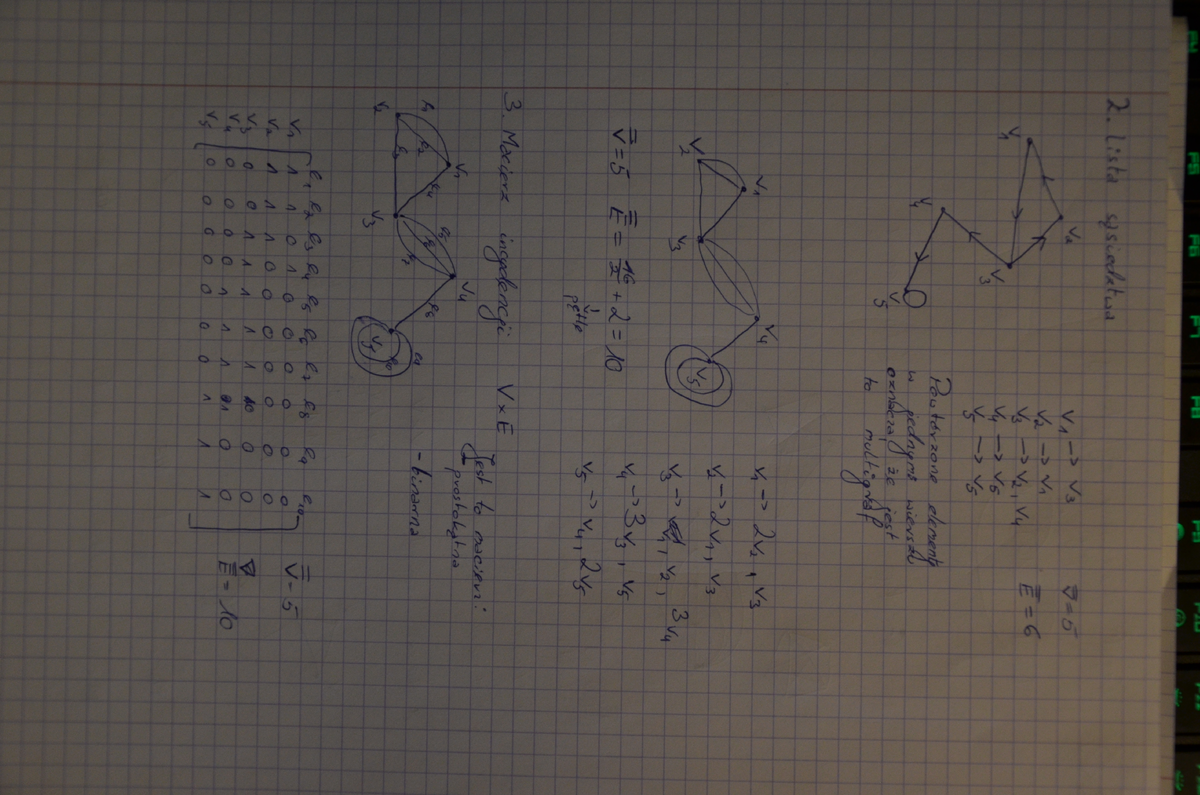 2. Lista sąsiedztwa
V1 V2 V3 V4 V5
V1 -> V3
V2 -> V1
V3 -> V2, V4
V4 -> V5
V5 -> V5
V̿ = 5
E̿ = 6
Powtórzone elementy
w jednym wierszu
oznaczają że jest
to multigraf
V1 V2 V3 V4 V5
V1 -> 2V2, V3
V2 -> 2V1, V3
V3 -> V1, V2, 3V4
V4 -> 3V3, V5
V5 -> V4, 2V5
V̿ = 5 E̿ = 16/2 + 2 = 10
pętle
3. Macierz incydencji V x E
Jest to macierz:
prostokątna
- binarna
V1 V2 V3 V4 V5
e1 e2 e3 e4 e5 e6 e7 e8 e9 e10
V1 1 1 0 1 0 0 0 0 0 0
V2 1 1 1 0 0 0 0 0 0 0
V3 0 0 1 1 1 1 1 0 0 0
V4 0 0 0 0 1 1 1 1 0 0
V5 0 0 0 0 0 0 0 1 1 1
V̿ = 5
E̿ = 10